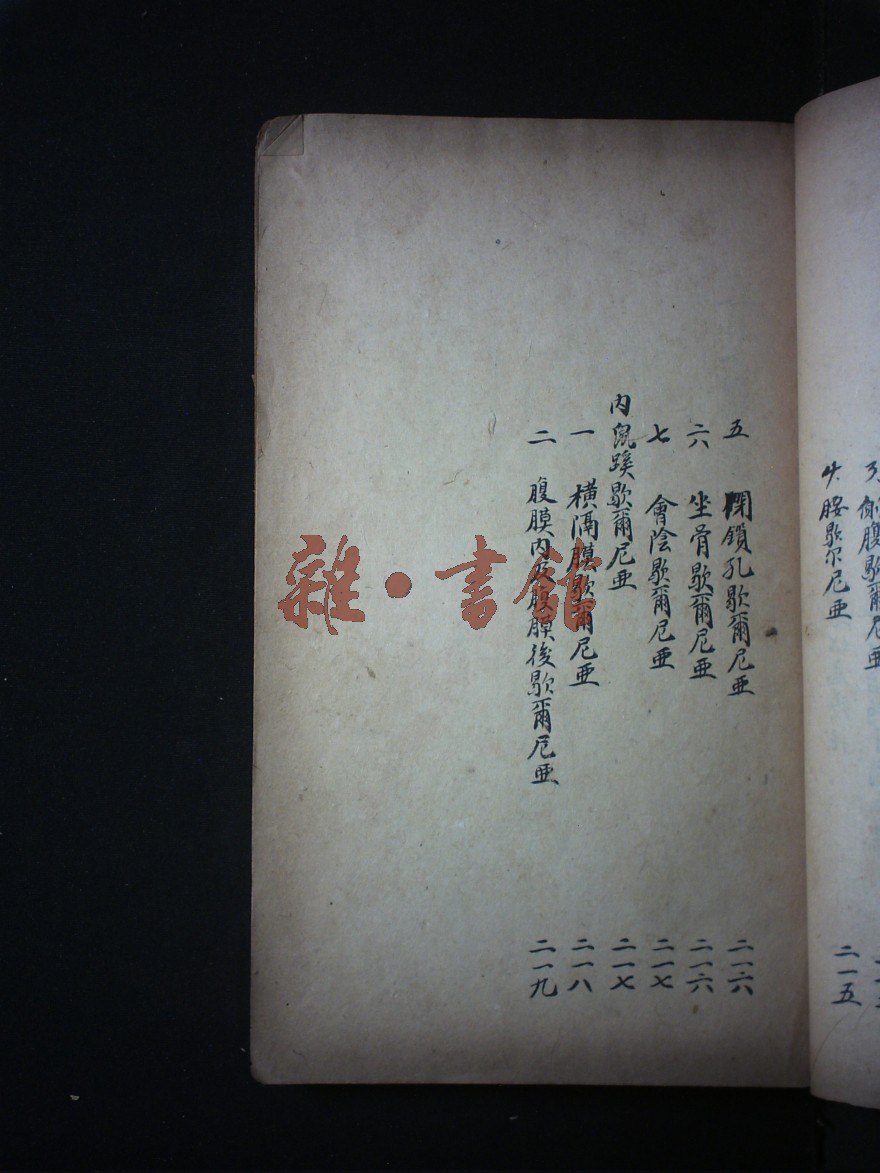 側腹歇爾尼亜
4. 腰歇尔尼亜 二一五
五 閉鎖孔歇爾尼亜 二一六
六 坐骨歇爾尼亜 二一六
七 會陰歇爾尼亜 二一七
内鼠蹊歇爾尼亜 二一七
一 横隔膜歇爾尼亜 二一八
二 腹膜内及腹膜後歇爾尼亜 二一九
雜·書館